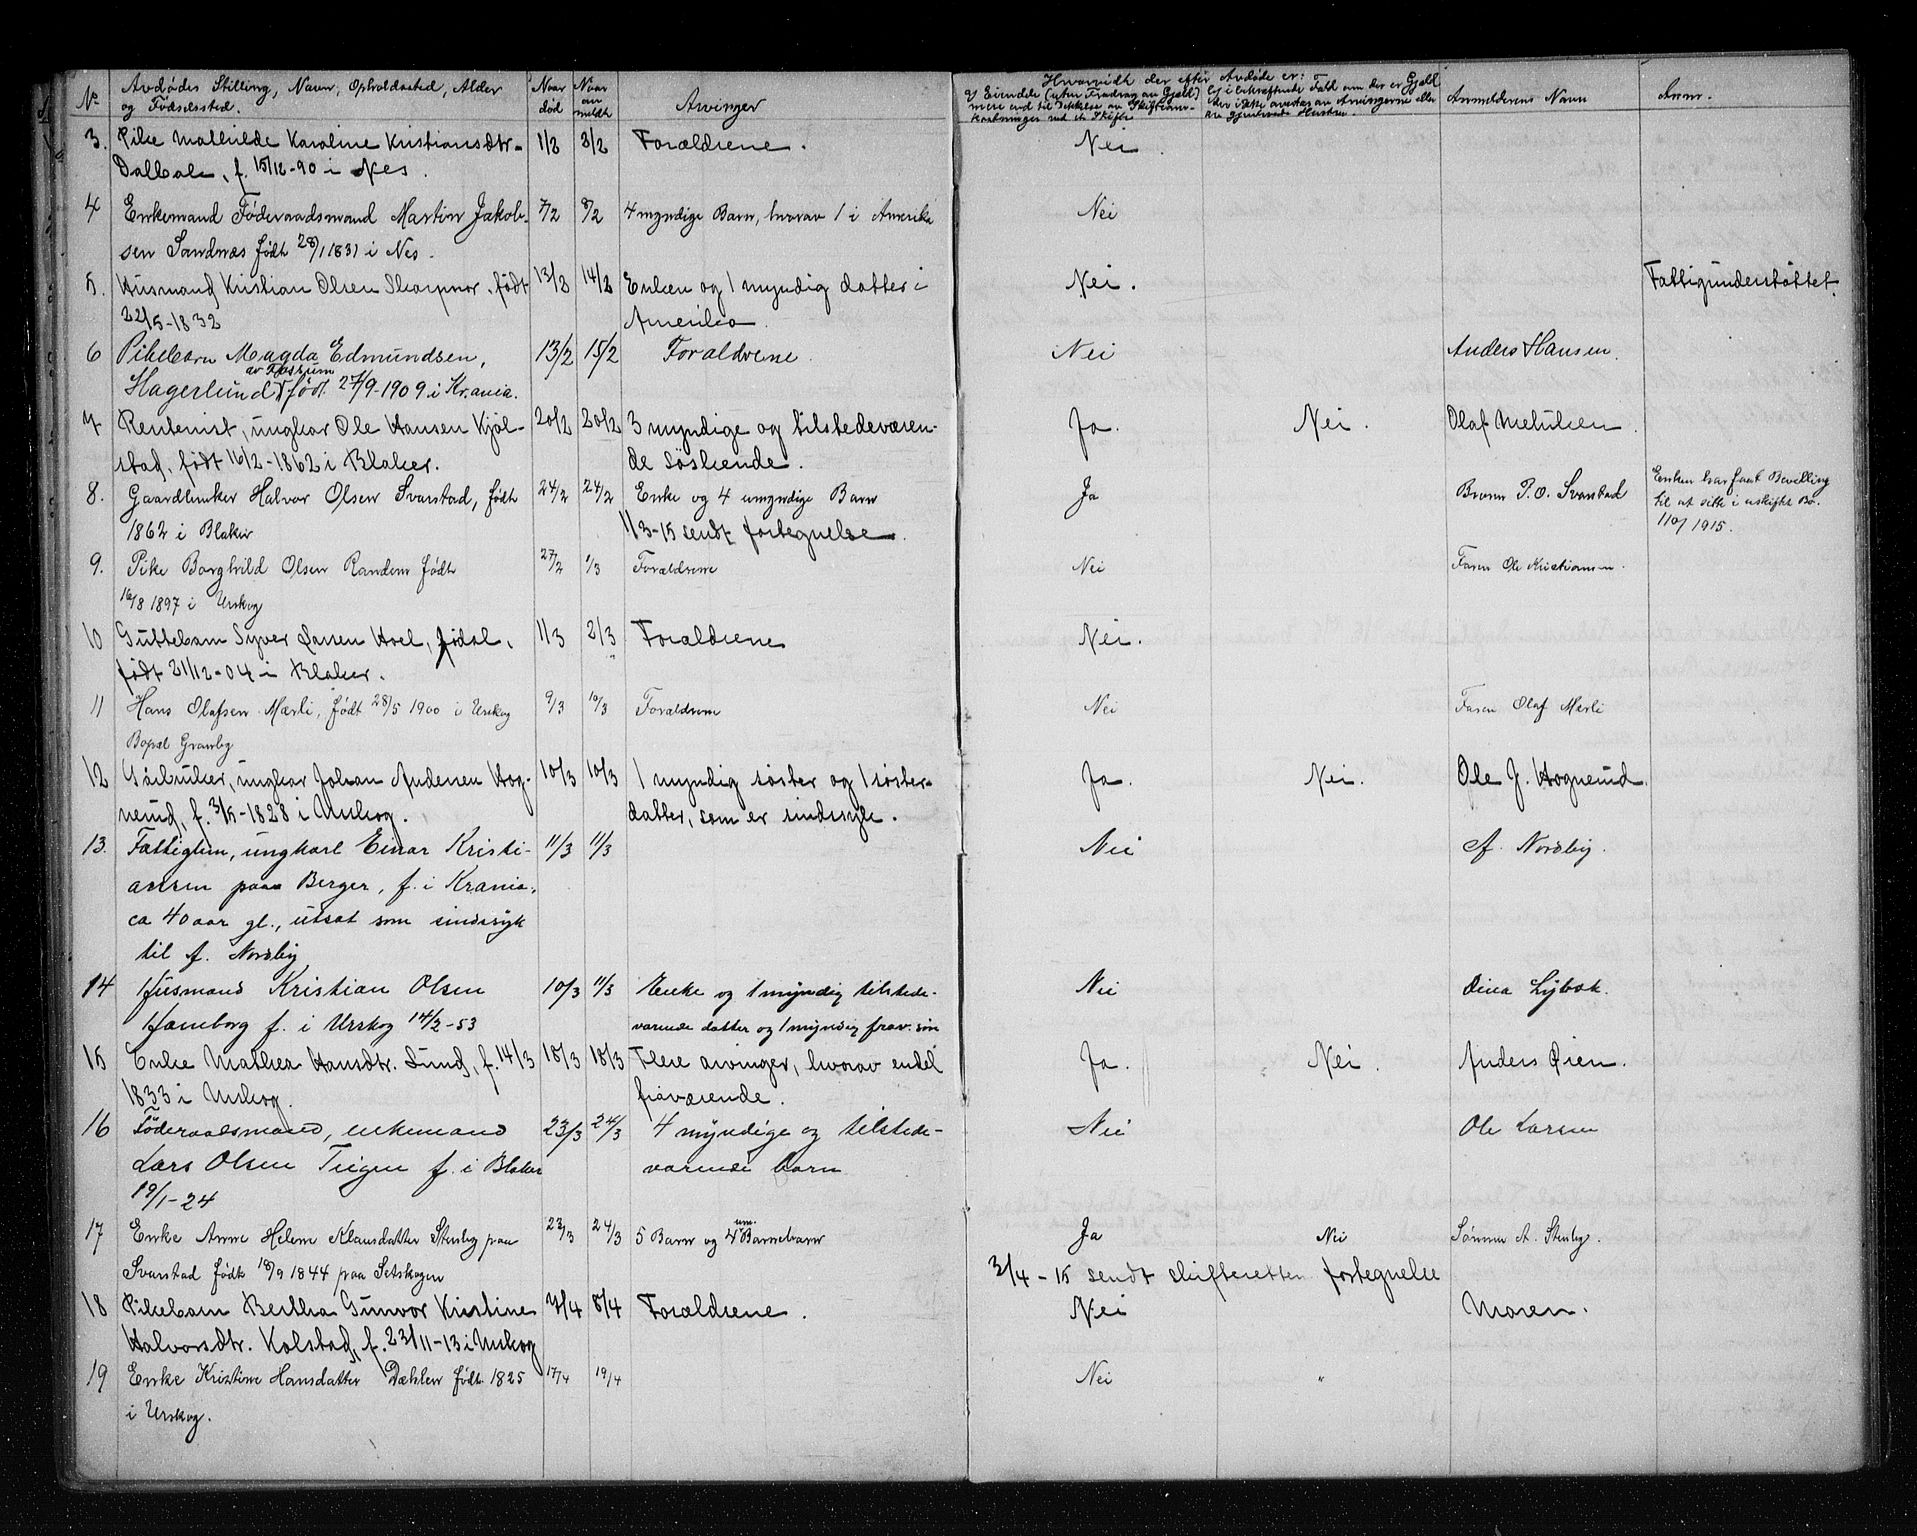 No Avdødes Stilling, Navn, Opholdssted, Alder og Fødselssted. Naar død Naar anmeldt Arvinger Hvorvidt der efter Avdøde er: Anmelderens Navn Anm.
3. Pike Mathilde Karoline Kristiansdtr. 1/2 3/2 Forældrene. Nei.
Dalbak, f. 15/12-90 i Nes.
4 Enkemand Føderaadsmand Martin Jakob- 7/2 8/2 4 myndige Barn, hvorav 1 i Amerika Nei
sen Sandnæs født 28/1 1831 i Nes.
5. Husmand Kristian Olsen , født 13/2 14/2 Enken og 1 myndig datter i Nei. Fattigunderstøttet.
22/5-1832 Amerika.
6 Pikebarn Magda Edmundsen, 13/2 15/2 Forældrene Nei Anders Hansen.
av Fossum
Hagerlund født 27/9-1909 i Kr.ania.
7 Rentenist, ungkar Ole Hansen Kjøl- 20/2 20/2 3 myndige og tilstedeværen- Ja. Nei. Olaf
stad, født 16/2-1862 i Blaker. de søskende.
8. Gaardbruker Halvor Olsen Svarstad, født 24/2 24/2 Enke og 4 umyndige Barn Ja Broren P. O. Svarstad Enken har faat Bevilling
1862 i Blaker 1/3-15 sendt fortegnelse. til at sitte i uskiftet Bo.
1915.
9. Pike Borghild Olsen Randem født 27/2 1/3 Forældrene Nei Faren Ole Kristiansen.
16/8 1897 i Urskog
10 Guttebarn Syver Larsen Hoel, 1/3 2/3 Forældrene Nei.
født 21/12-04 i Blaker.
11 Hans Olafsen Mærli, født 28/5 1900 i Urskog 9/3 10/3 Forældrene Nei Faren Olaf Mærli
Bopæl Granby
12 Gaardbruker, ungkar Johan Andersen Hog- 10/3 10/3 1 myndig søster og 1 søster- Ja. Nei. Ole J. Hogneud.
neud, f. 3/5-1828 i Urskog. datter, som er sindssyk.
13. Fattiglem, ungkarl Einar Kristi- 11/3 11/3 Nei A. Nordby.
ansen paa Berger, f. i Krania,
ca 40 aar gl., utsat som sindssyk
til A. Nordby
14 Husmand Kristian Olsen 10/3 11/3 Enke og 1 myndig tilstede- Nei Dina
Haneborg f. i Urskog 14/2-53 værende datter og 1 myndig frav. søn
15 Enke Mathea Hansdtr. Lund, f. 14/3 18/3 18/3 Flere arvinger, hvorav endel Ja. Nei. Anders Øien.
1833 i Urskog. fraværende.
16 Føderaadsmand, enkemand 23/3 24/3 4 myndige og tilstede- Nei Ole Larsen
Lars Olsen Teigen f. i Blaker værende barn
19/1-24
17 Enke Anne Helene Klausdatter Stenby paa 23/3 24/3 5 Barn og 4 um. Barnebarn Ja Nei Sønnen A. Stenby.
Svarstad født 18/9 1844 paa Setskogen 3/4-15 sendt skifteretten fortegnelse
18 Pikebarn Bertha Gunvor Kristine 7/4 8/4 Forældrene. Nei Moren.
Halvorsdtr. Kolstad, f. 23/11-13 i Urskog
19 Enke Kristine Hansdatter Dæhlen født 1825 17/4 19/4 Nei "
i Urskog.